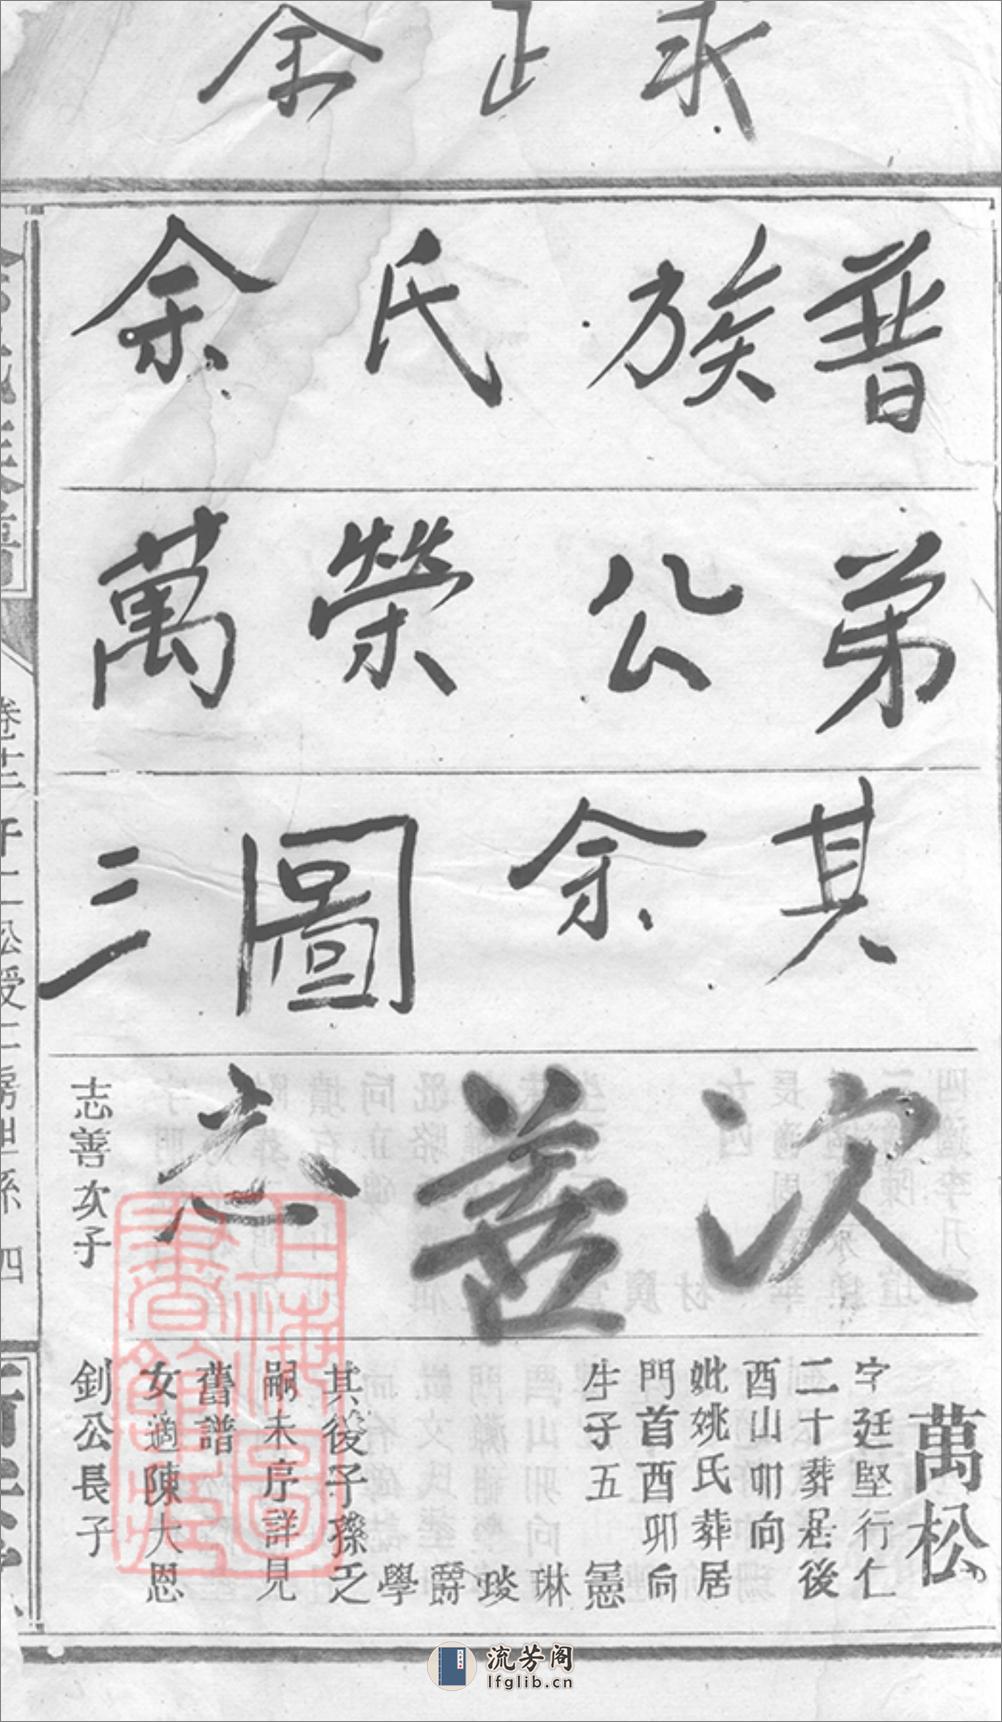 余正永
余氏族普
萬榮公弟
三圖余其
志善次
志善次子
萬松
字廷堅行仁
二十葬居後
酉山卯向
妣姚氏葬居
門首酉卯向
生子五
琳
琰
爵
學
其後子孫乏
嗣未序詳見
舊譜
女適陳大恩
釗公長子
上海圖書館藏
流芳阁
lfglib.cn